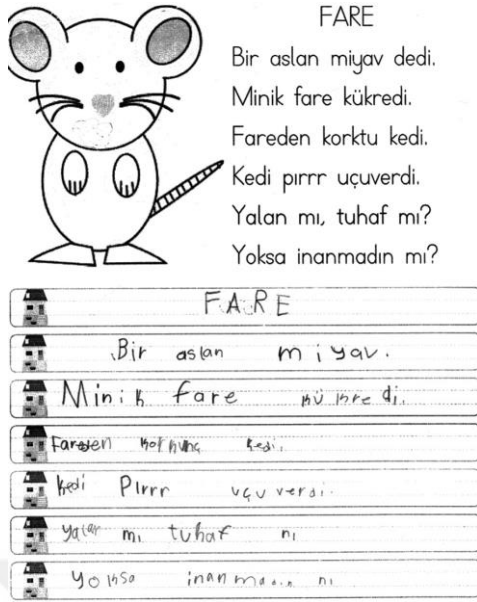 FARE
Bir aslan miyav dedi.
Minik fare kükredi.
Fareden korktu kedi.
Kedi pırrr uçuverdi.
Yalan mı, tuhaf mı?
Yoksa inanmadın mı?
FARE
Bir aslan miyav.
Minik fare kükredi.
Fareden kedi.
kedi Pırrr uçuverdi.
yalan mı tuhaf nı
yoksa inanmadın nı